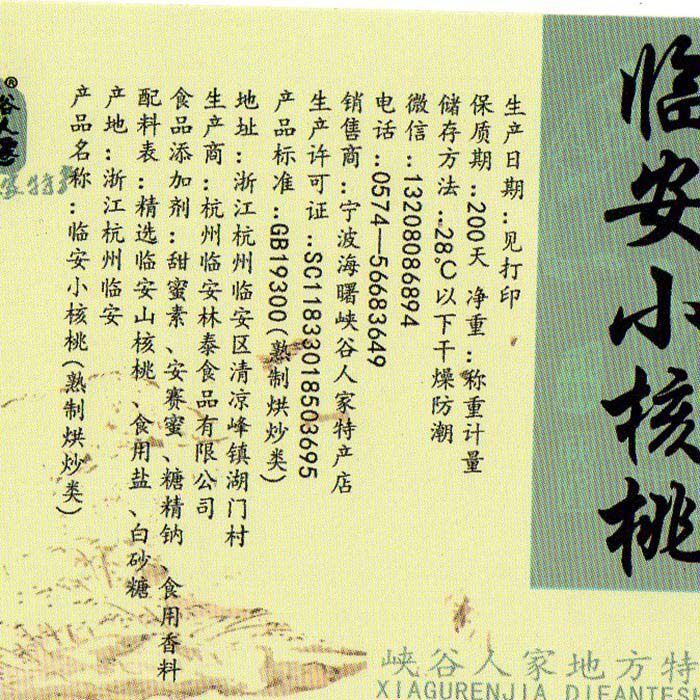 临安小核桃
谷人家®
家特产
产品名称：临安小核桃(熟制烘炒类)
产地：浙江杭州临安
配料表：精选临安山核桃、食用盐、白砂糖
食品添加剂：甜蜜素、安赛蜜、糖精钠、食用香料
生产商：杭州临安林泰食品有限公司
地址：浙江杭州临安区清凉峰镇湖门村
产品标准：GB19300(熟制烘炒类)
生产许可证：SC11833018503695
销售商：宁波海曙峡谷人家特产店
电话：0574—56683649
微信：13208086894
储存方法：28℃以下干燥防潮
保质期：200天 净重：称重计量
生产日期：见打印
峡谷人家地方特
XIAGURENJIA DIFANTES